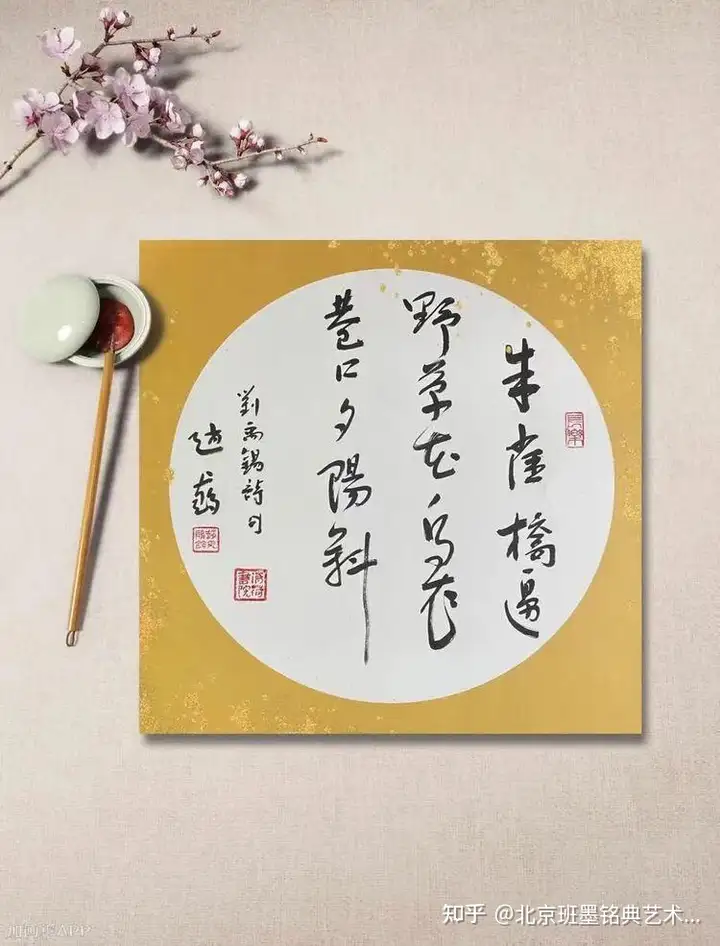 朱雀橋邊
野草花烏衣
巷口夕陽斜
劉禹錫詩句
趙
知乎 @北京班墨铭典艺术...